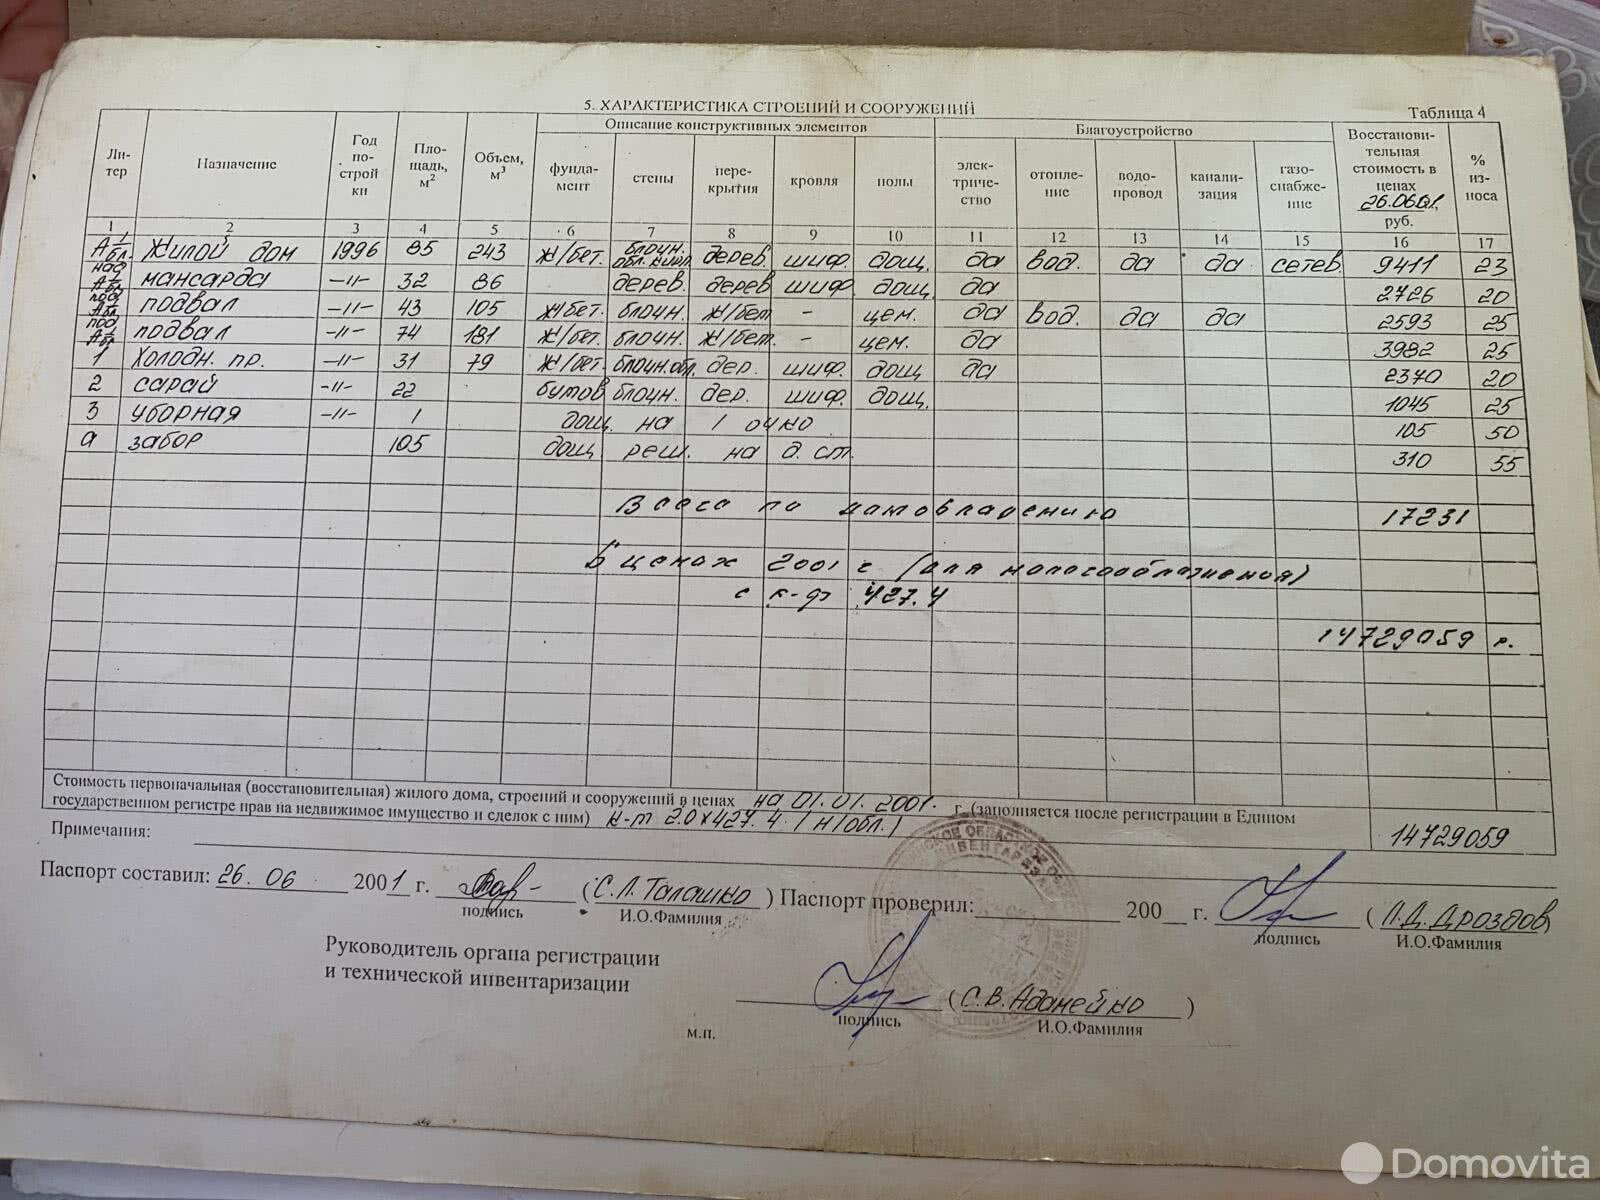 5. ХАРАКТЕРИСТИКА СТРОЕНИЙ И СООРУЖЕНИЙ
Таблица 4
Ли-тер Назначение Год по-строй ки Пло-щадь, м2 Объем, м3 Описание конструктивных элементов Благоустройство Восстанови-тельная стоимость в ценах 26.06.01, руб. % из-носа
фунда-мент стены пере-крытия кровля полы элек-триче-ство отопле-ние водо-провод канали-зация газо-снабже-ние
1 2 3 4 5 6 7 8 9 10 11 12 13 14 15 16 17
А 1/бл. жилой дом 1996 85 243 ж/бет. блочн. обл. кирп. дерев. шиф. дощ. да вод. да да сетев. 9411 23
над А 1/бл. мансарда -"- 32 86 дерев. дерев шиф. дощ. да 2726 20
под А 1/бл. подвал -"- 43 105 ж/бет. блочн. ж/бет - цем. да вод. да да 2593 25
под А 1/бл. подвал -"- 74 181 ж/бет. блочн. ж/бет. - цем. да 3982 25
1 холодн. пр. -"- 31 79 ж/бет. блочн.обл. дер. шиф. дощ да 2370 20
2 сарай -"- 22 бутов блочн. дер. шиф. дощ. 1045 25
3 уборная -"- 1 дощ. на 1 очко 105 50
а забор 105 дощ реш. на д. ст. 310 55
Всего по домовладению 17231
В ценах 2001 г (для налогообложения)
с к-ф 427.4
14729059 р.
Стоимость первоначальная (восстановительная) жилого дома, строений и сооружений в ценах на 01.01.2001. г. (заполняется после регистрации в Едином
государственном регистре прав на недвижимое имущество и сделок с ним) к-т 2.0 х 427.4 (н/обл.) 14729059
Примечания:
Паспорт составил: 26.06 2001 г. (С.Л.Талашко) Паспорт проверил: 200 г. (Л.Д.Дроздов)
подпись И.О.Фамилия подпись И.О.Фамилия
Руководитель органа регистрации
и технической инвентаризации
(С.В.Аданейко)
подпись И.О.Фамилия
м.п.
Domovita